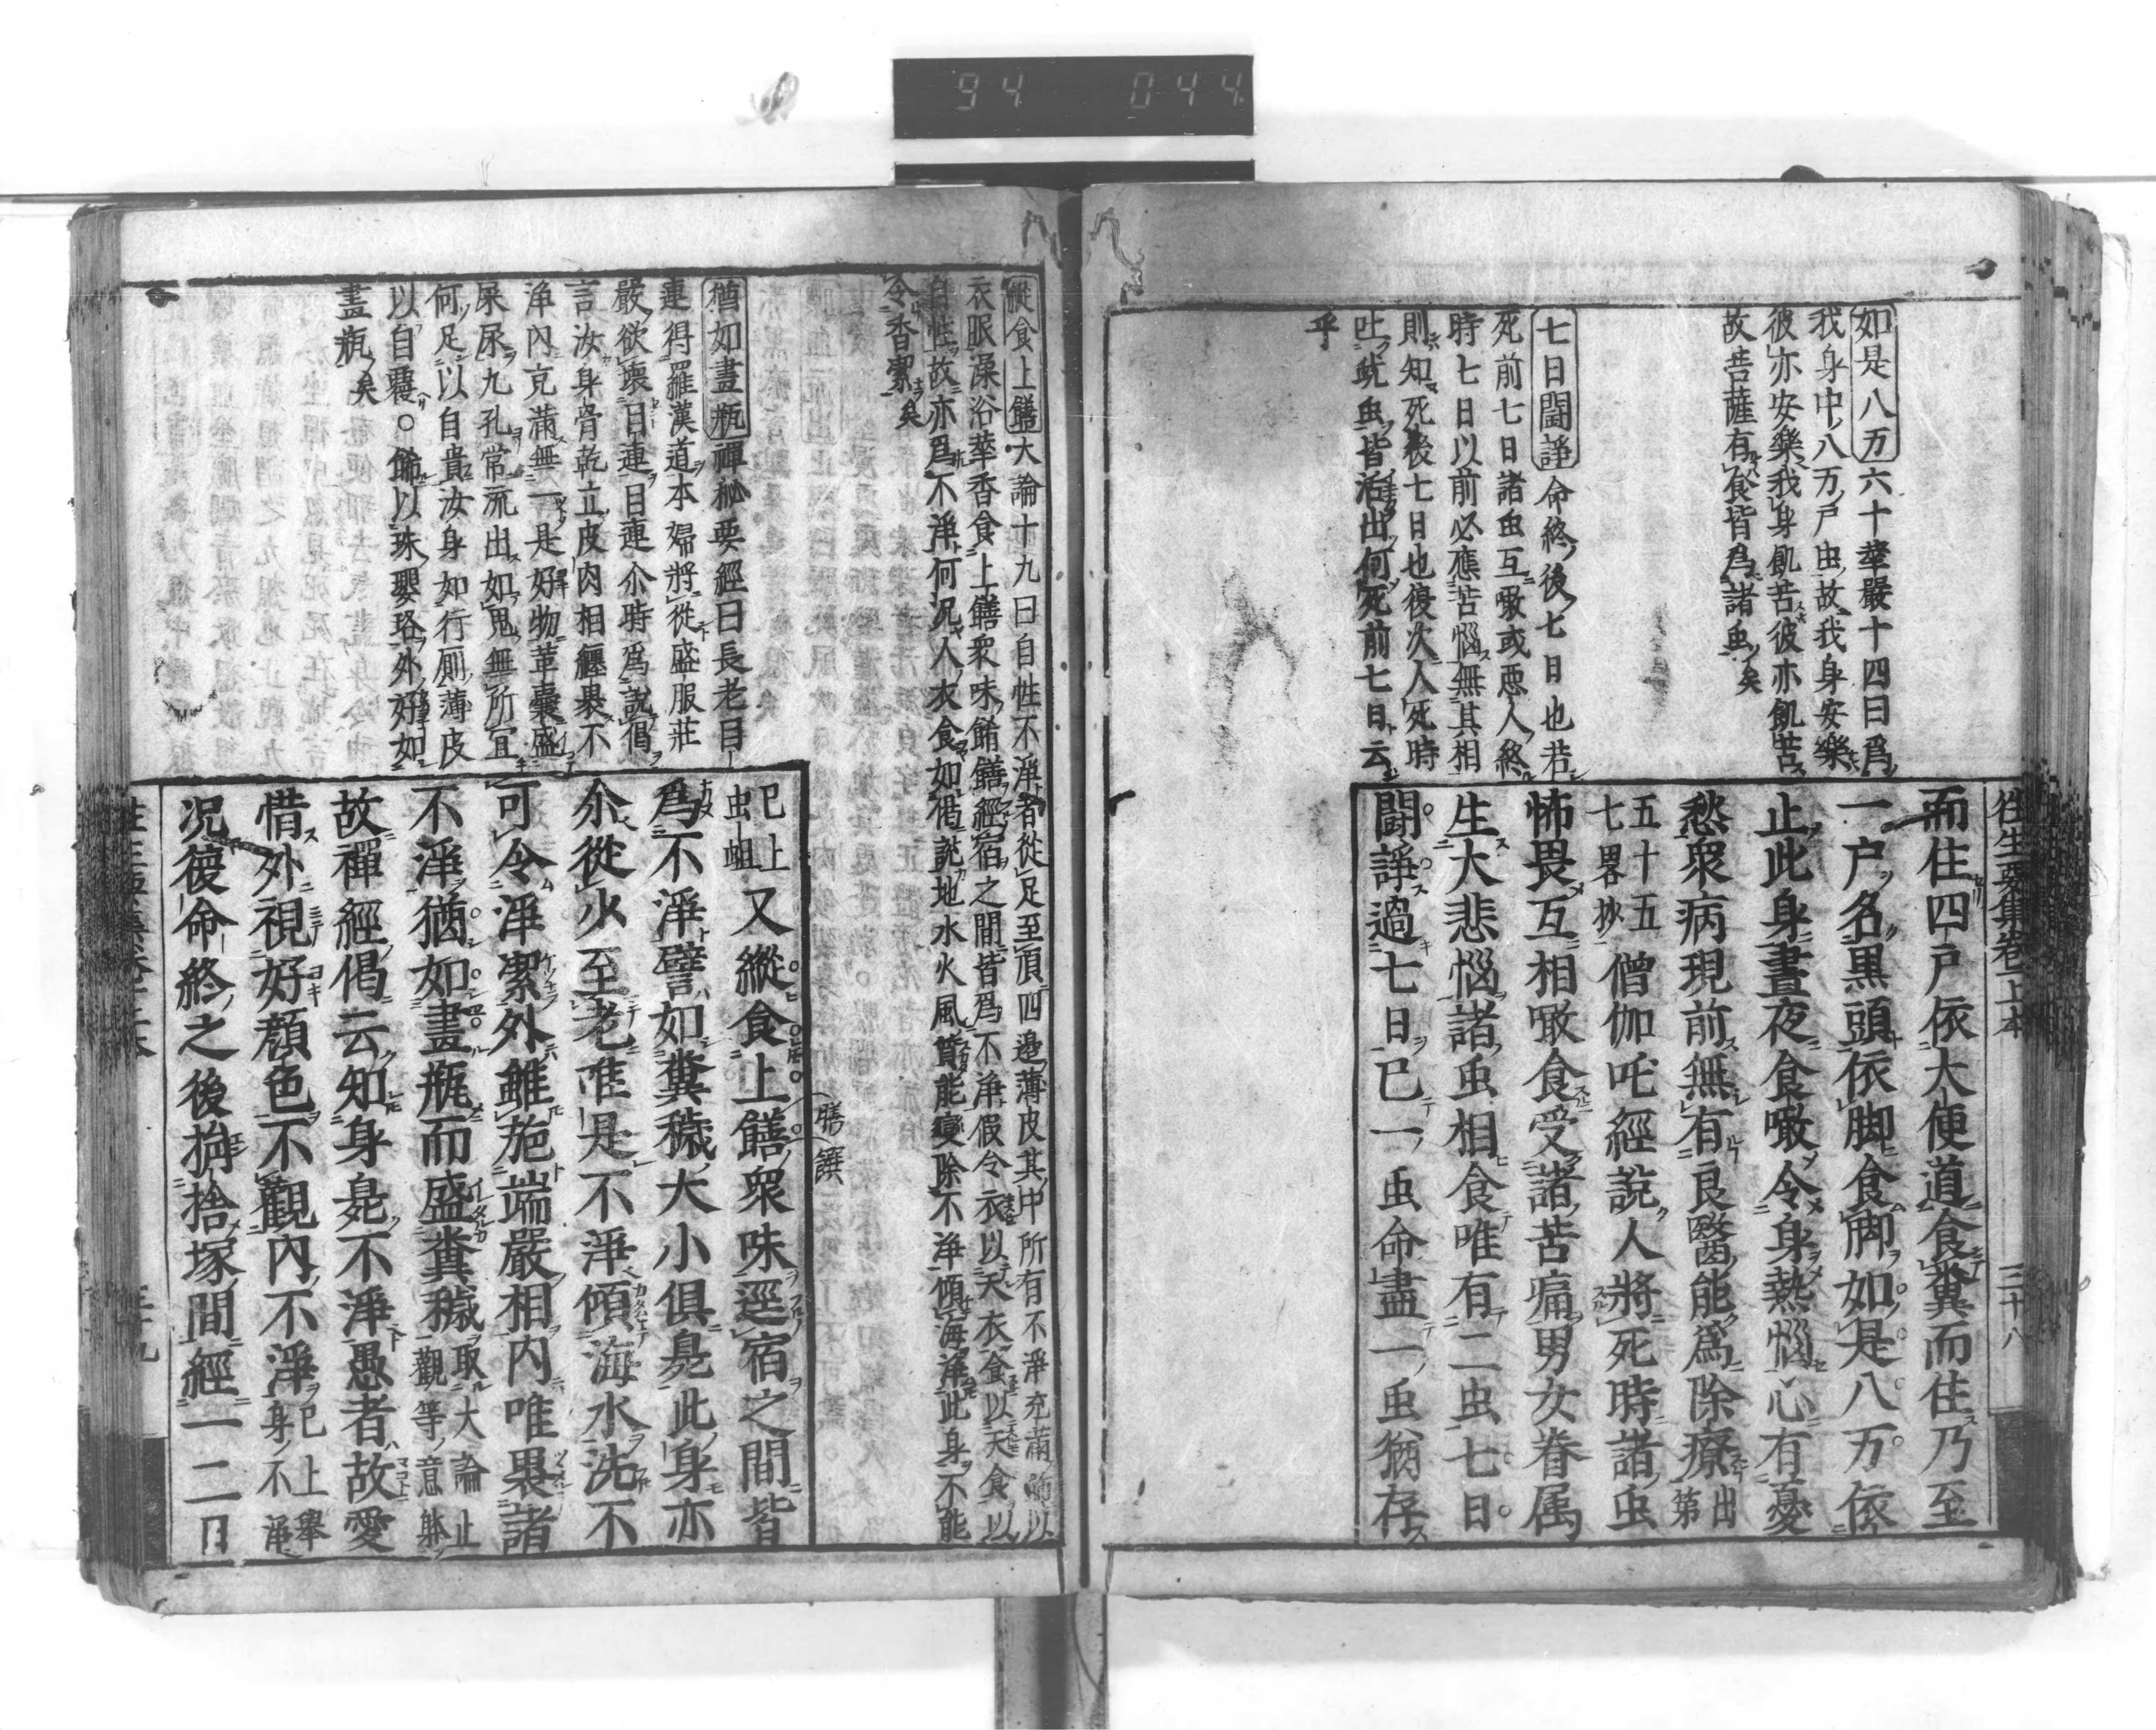 94 044
往生要集卷上本 三十八
如是八万六十華嚴十四曰爲
我身中八万戸虫故我身安樂
彼亦安樂我身飢苦彼亦飢苦
故菩薩有食皆爲諸虫矣
七日闘諍命終後七日也若
死前七日諸虫互噉或悪人終
時七日以前必應苦惱無其相
則知死後七日也復次人死時
吐蚘虫皆活出何死前七日云
乎
而住四戸依大便道食糞而住乃至
一戸名黒頭依脚食脚如是八万依
止此身晝夜食噉令身熱惱心有憂
愁衆病現前無有良醫能爲除療出第
五十五
七畧抄
僧伽吒經說人將死時諸虫
怖畏互相噉食受諸苦痛男女眷属
生大悲惱諸虫相食唯有二虫七日
闘諍過七日已一虫命盡一虫猶存
縱食上饍大論十九曰自性不淨者從足至頂四邊薄皮其中所有不淨充滿飾以
衣服澡浴華香食上饍衆味餚饍經宿之間皆爲不淨假令衣以天衣食以天食以
自性故亦爲不淨何況人衣食如偈說地水火風質能變除不淨傾海淨此身不能
令香潔矣
猶如畫瓶禪秘要經曰長老目
連得羅漢道本婦將從盛服莊
嚴欲壞目連目連尒時爲說偈
言汝身骨乾立皮肉相纒裹不
淨內充滿無一是好物革囊盛
屎尿九孔常流出如鬼無所宜
何足以自貴汝身如行厠薄皮
以自覆。飾以珠瓔珞外好如
畫瓶矣
膳 饌
已上
虫蛆
又縱食上饍衆味逕宿之間皆
爲不淨譬如糞穢大小俱是此身亦
尒從少至老唯是不淨傾海水洗不
可令淨潔外雖施端嚴相內唯裹諸
不淨猶如畫瓶而盛糞穢取大論止
觀等意躰
故禪經偈云知身臭不淨愚者故愛
惜外視好顏色不觀內不淨已上舉
身不淨
況復命終之後捐捨塚間經一二日